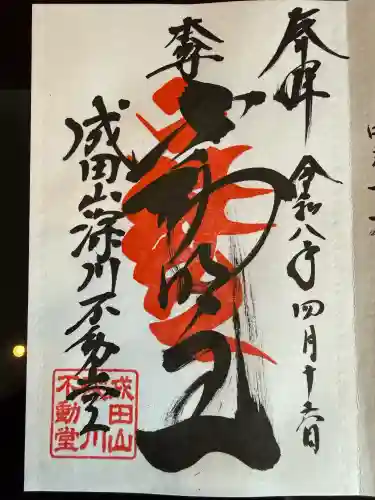 奉拝
令和八年四月十六日
奉
不動明王
成田山深川不動堂
成田山
深川
不動堂